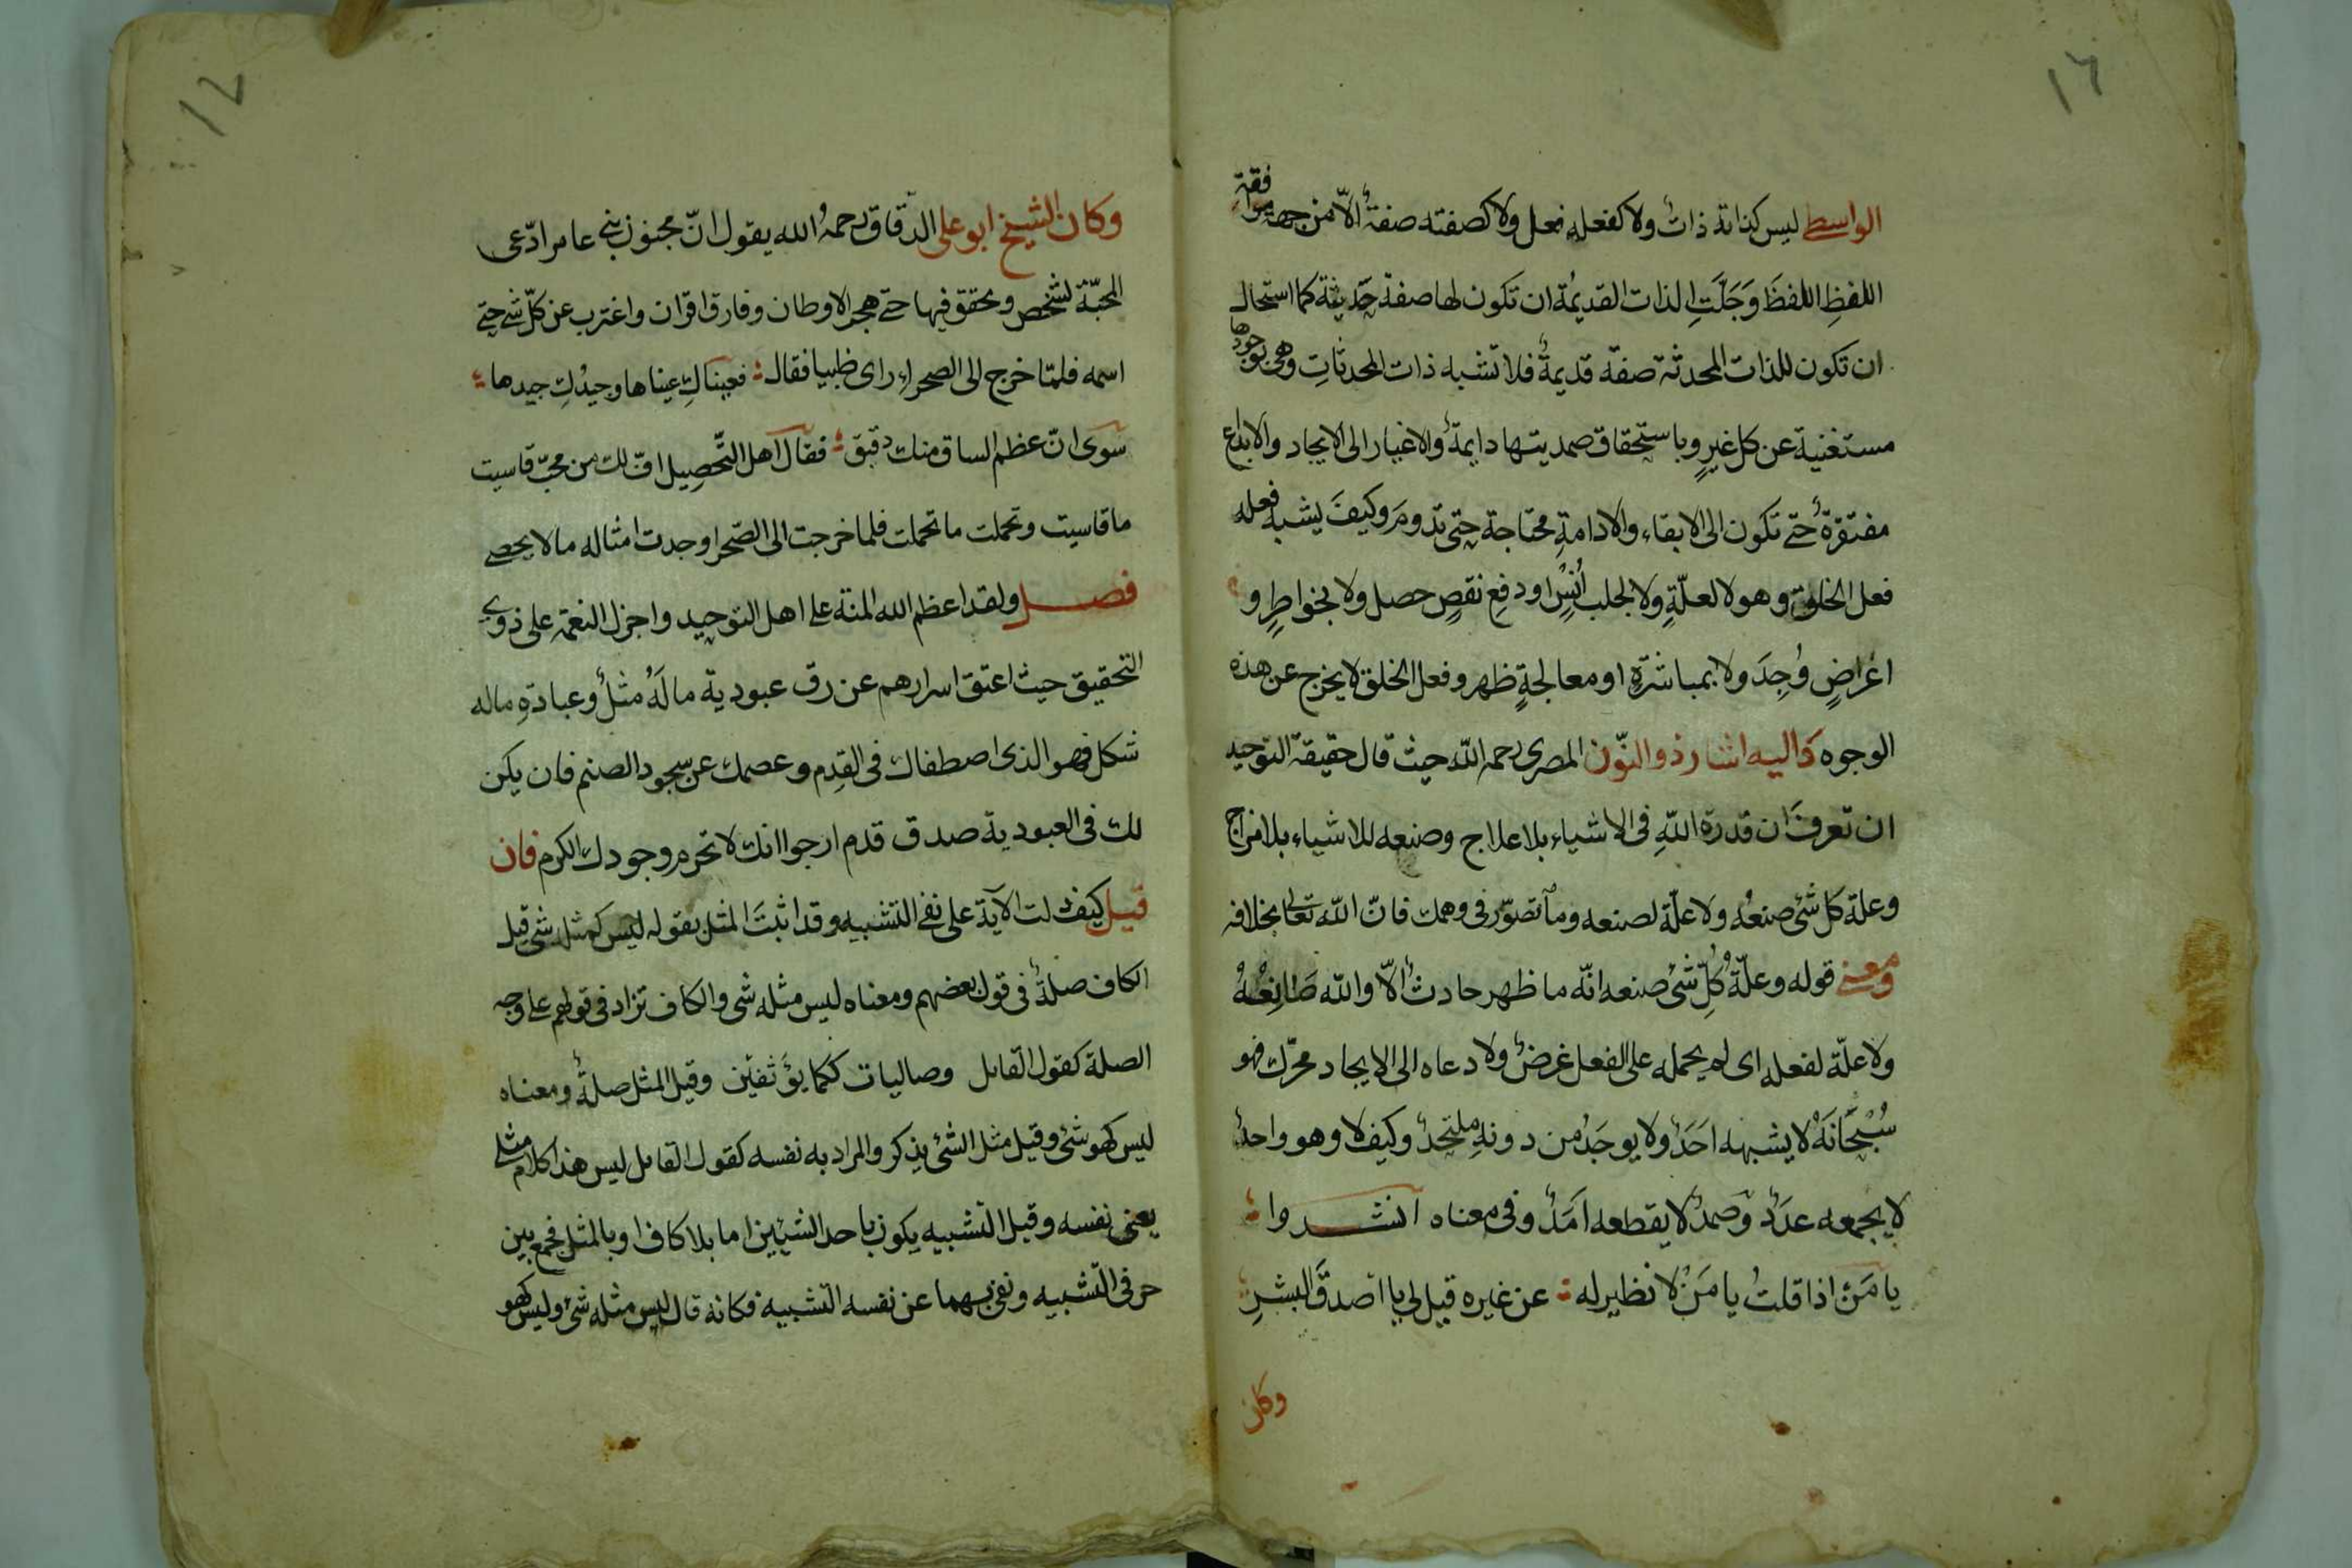 ١٦
الواسطى ليس كذاته ذاتٌ ولا كفعله فعل ولا كصفته صفةٌ الّا من جهة موافقة
اللفظِ اللفظَ وَجَلَّتِ الذات القديمُة ان تكون لها صفة حَديثة كما استحال
ان تكون للذات المحدثة صفة قديمةٌ فلا تشبه ذات المحدثاتِ وهى بوجودها
مستغنية عن كل غيرٍ وباستحقاق صمديتها دايمةٌ والاغيار الى الايجاد والابداع
مفتقرةٌ حتى تكون الى الابقاء والادامةِ محتاجة حتى تدومَ وكيفَ يشبه فعله
فعل الخلق وهو لا لعلّةٍ ولا لجلب اُنسٍ اودفعِ نقصٍ حصل ولا بخواطرٍ و
اغراضٍ وُجِدَ ولا بمباشرةٍ او معالجةٍ ظهر وفعل الخلق لا يخرج عن هذه
الوجوه واليه اشار ذوالنّون المصرى رحمه اللّه حيث قال حقيقة التوحيد
ان تعرفَ ان قدرة اللّهِ فى الاشياء بلا علاج وصنعه للاشياء بلا مزاج
وعلة كل شئ صنعُه ولا علّة لصنعه وما تصوّر فى وهمك فانّ اللّه تعالى بخلافه
ومعنى قوله وعلّةُ كُلِّ شئ صنعه انّه ما ظهر حادثٌ الّا واللّه صَانِعُهُ
ولا علّة لفعله اى لم يحمله على الفعل غرضٌ ولا دعاه الى الايجاد محرّك فهو
سُبْحَانَهُ لا يشبهه اَحَدٌ ولا يوجَدُ من دونهِ ملتحدٌ وكيف لا وهو واحدٌ
لا يجمعه عدَدٌ وصَمدٌ لا يقطعه اَمَدٌ وفى معناه انشدوا
يا مَنْ اذا قلتُ يا مَنْ لا نظير له عن غيره قيل لى يا اصدقَ البشرِ
وكان
١٧
وكان الشيخ ابو على الدقّاق رحمهُ الله يقول انّ مجنون بنى عامر ادّعى
المحبّة لشخص وتحقق فيها حتى هجر الاوطان وفارق اقران واغترب عن كلّ شئ حتى
اسمه فلمّا خرج الى الصحراء راى ظبيا فقال فعيناكِ عيناها وجيدُكِ جيدها
سوى انّ عظم الساق منك دقيق فقال اهل التّحصِيل افّ لك من محبّ قاسيت
ما قاسيت وتحملت ما تحملت فلما خرجت الى الصّحرا وجدت امثاله ما لا يحصى
فصل ولقد اعظم الله المنة على اهل التوحيد واجزل النعمة على ذوى
التحقيق حيث اعتق اسرارهم عن رق عبودية ما لَهُ مثلٌ وعبادةِ ماله
شكل فهو الذى اصطفاك فى القِدم وعصمك عن سجود الصنم فان يكن
لك فى العبودية صدق قدم ارجوا انك لا تحرم وجودك الكرم فان
قيل كيف دلت الآية على نفى التشبيه وقد اثبتَ المثل بقوله ليس كمثله شئ قيل
الكاف صلةٌ فى قول بعضهم ومعناه ليس مثله شى والكاف تزاد فى قولهم على وجه
الصلة كقول القايل وصاليات ككما يؤثفين وقيل المثل صلةٌ ومعناه
ليس كهو شئ وقيل مثل الشئ يذكر والمراد به نفسه كقول القايل ليس هذا كلام مثلى
يعنى نفسه وقيل التشبيه يكون باحد الشيئين اما بلاكاف او بالمثل فجمع بين
حرفى التشبيه ونفى بهما عن نفسه التشبيه فكانه قال ليس مثله شئ وليس كهو